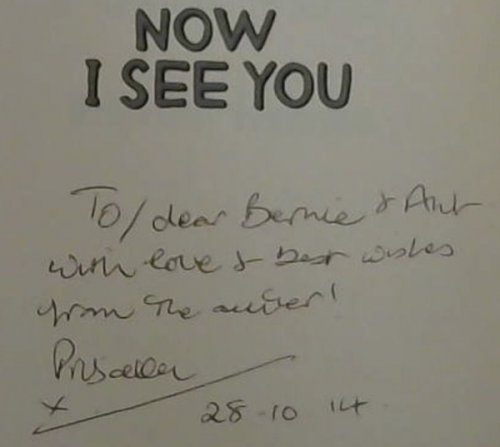 NOW
I SEE YOU
To/ dear Bernie & Ant
with love & best wishes
from the author!
Priscilla
x
28-10 14